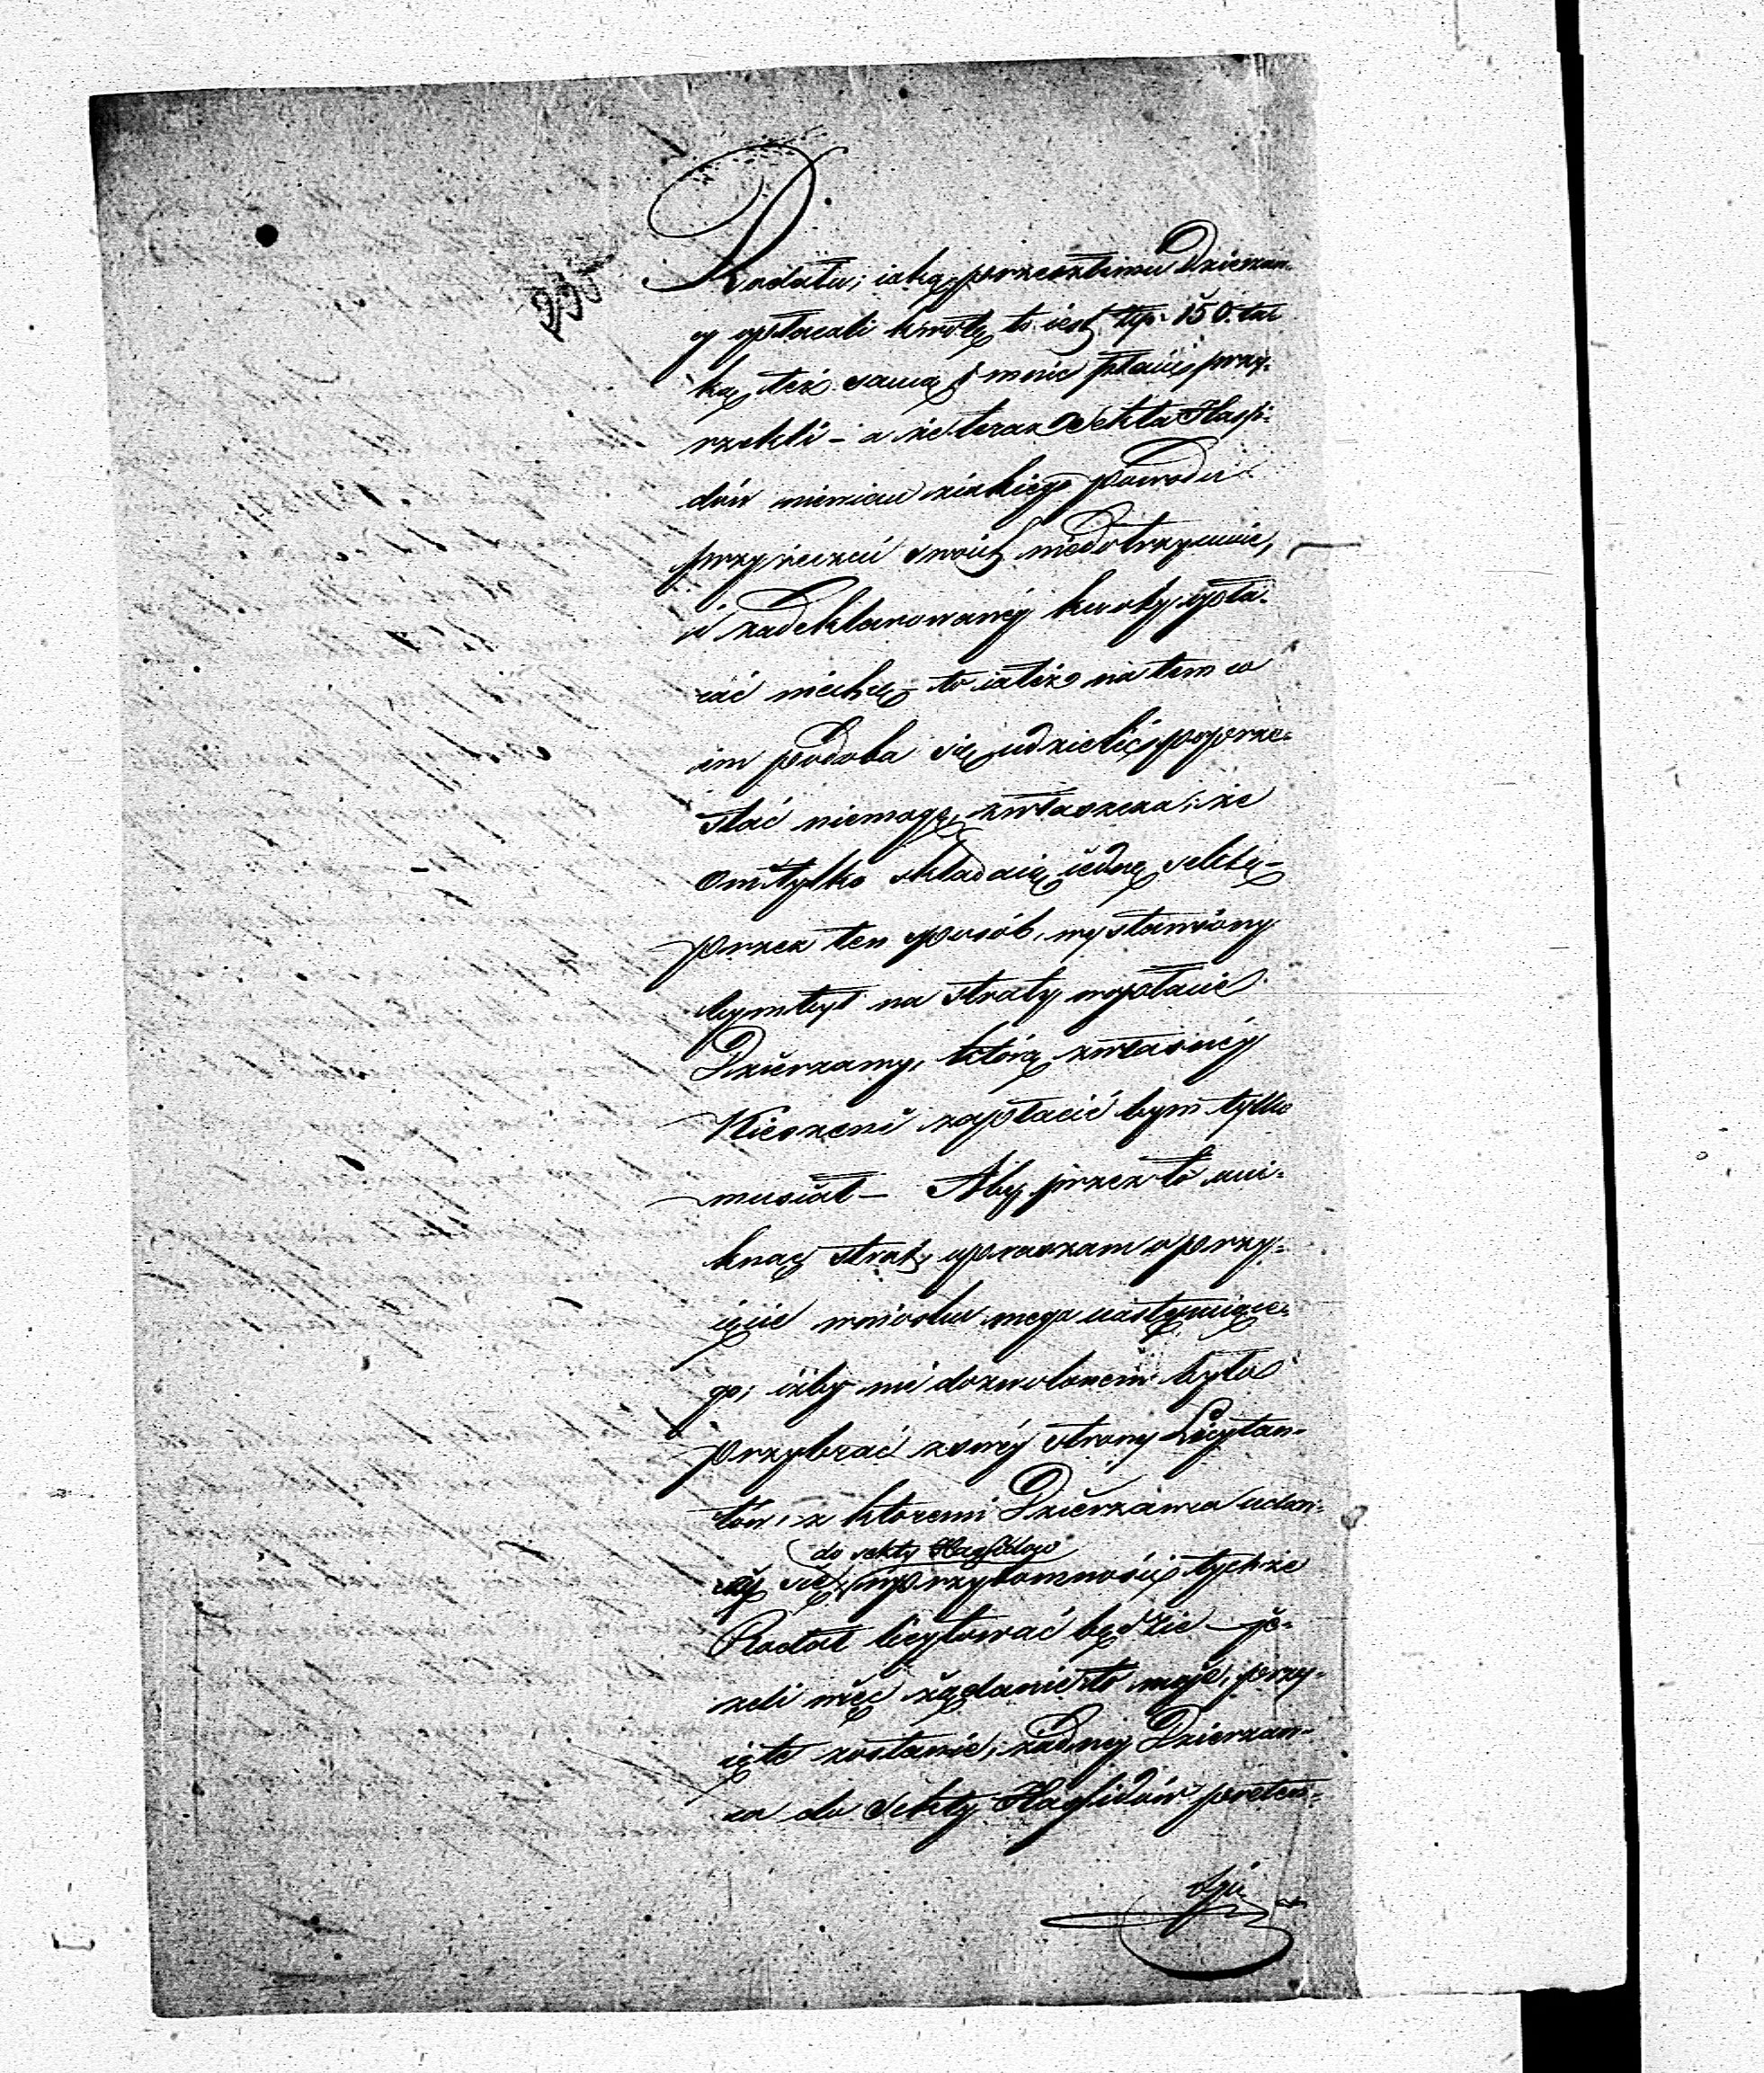 Rodału, iaką przeszłemu Dzierzaw-
cy opłacali kwotę to iest złp. 150. ta-
ką też samą i mnie płacić przy-
rzekli – a że teraz Sekta Hasy-
dów niewiem ziakiego powodu
przyrzeczeń swoich niedotrzymuie,
i zadeklarowanéy kwoty opła-
cać niechcę – to iateż na tem co
im podoba się udzielić poprze-
stać niemogę, zwłaszcza, że
oni tylko składaią iednę sektę –
przez ten sposób, wystawiony
bym był na straty wopłacie
Dzierzawy, którą zwłasnéy
Kieszeni zapłacić bym tylko
musiał – Aby przez to uni-
knąć strat, upraszam o przy-
ięcie wniosku mego następuiące-
go, iżby mi dozwolonem było
przybrać zswéy strony Licytan-
tów, z ktoremi Dzierzawca udaw-
szy się do sekty Hasydów wprzytomności tychże
Rodał licytować będzie – je-
zeli więc żądanie to moje, przy-
ięte zostanie, żadnéy Dzierzaw-
ca do Sekty Hasydów preten-
syi